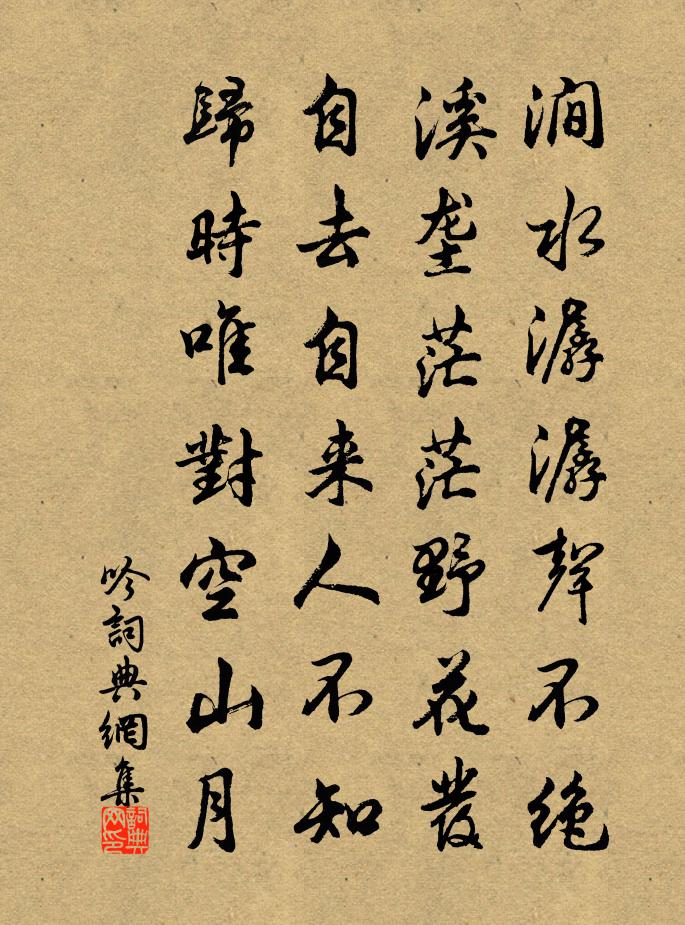 澗水潺潺聲不絶
溪垄茫茫野花發
自去自来人不知
歸時唯對空山月
吟詞典網集
詞典网印